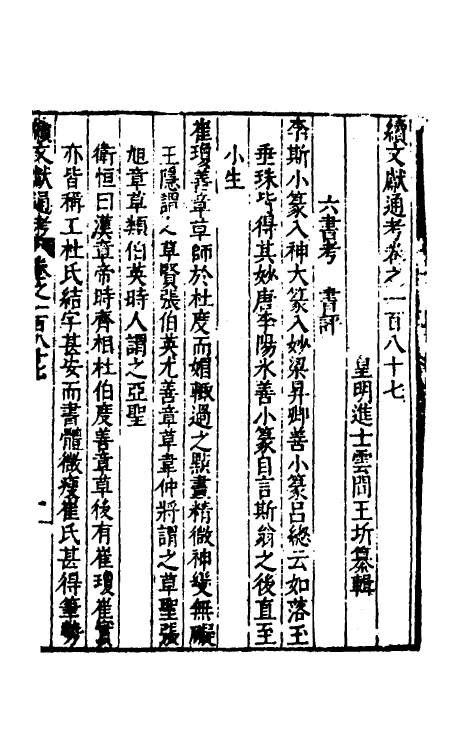 續文獻通考卷之一百八十七
皇明進士雲間王圻纂輯
六書考　書評
李斯小篆入神大篆入妙梁昇卿善小篆呂緫云如落玉
垂珠皆得其妙唐李陽氷善小篆自言斯翁之後直至
小生
崔瑗善章草師於杜度而媚輙過之點畫精微神變無礙
王隱謂之草賢張伯英尤善章草韋仲將謂之草聖張
旭章草類伯英時人謂之亞聖
衛恒曰漢章帝時齊相杜伯度善章草後有崔瑗崔寔
亦皆稱工杜氏結字甚安而書體微瘦崔氏甚得筆勢
續文獻通考 卷之一百八十七 一